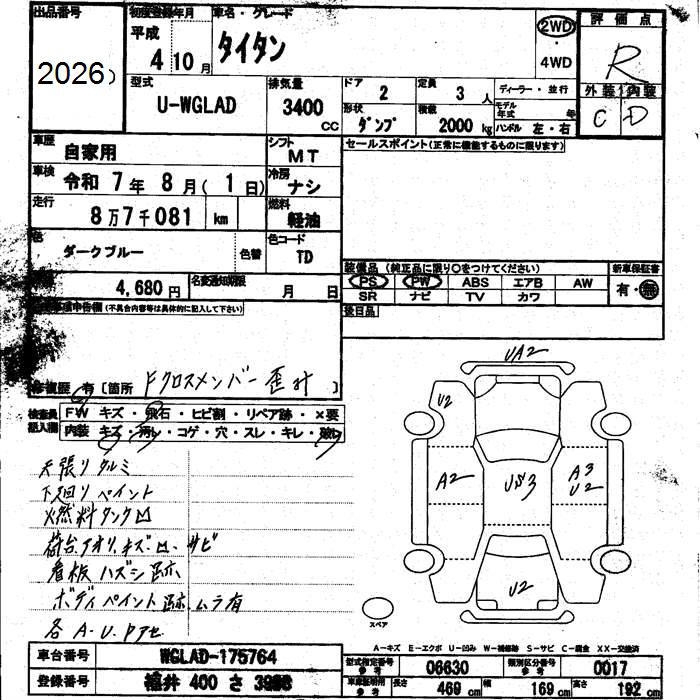 出品番号 初度登録年月 車名・グレード 評価点
2026)
平成 4 10月 タイタン 2WD ・ 4WD R
型式 U-WGLAD 排気量 3400 CC
ドア 2 定員 3 人 ディーラー・並行
形状 ダンプ 積載 2000 kg モデル年式 年 ハンドル 左・右
外装 内装
C D
車歴 自家用 シフト MT
セールスポイント(正常に機能するものに限ります)
車検 令和 7年 8月(1日) 冷房 ナシ
走行 8万7千081 km 燃料 軽油
色 ダークブルー 色替 色コード TD
装備品(純正品に限り○をつけてください) 新車保証書
PS PW ABS エアB AW 有・無
SR ナビ TV カワ
4,680円 名変通知期限 月 日
後日品
申告欄(不具合内容等は具体的に記入して下さい)
修復歴 有〔箇所 Fクロスメンバー 歪 〕
検査員記入欄 FW キズ・飛石・ヒビ割・リペア跡・×要
内装 キズ・汚レ・コゲ・穴・スレ・キレ・
天張リ タルミ
下廻リ ペイント
燃料タンク凹
荷台、アオリ、キズ・凹・サビ
看板 ハズシ跡
ボディペイント跡、ムラ有
各 A・U・Pアセ
UA2
U2
A2
US3
A3
U2
U2
スペア
A-キズ E-エクボ U-凹み W-補修跡 S-サビ C-腐食 XX-交換済
車台番号 WGLAD-175764
型式指定番号 参考 06630 類別区分番号 参考 0017
登録番号 福井 400 さ
車庫証明用 参考 長さ 469 cm 幅 169 cm 高さ 192 cm